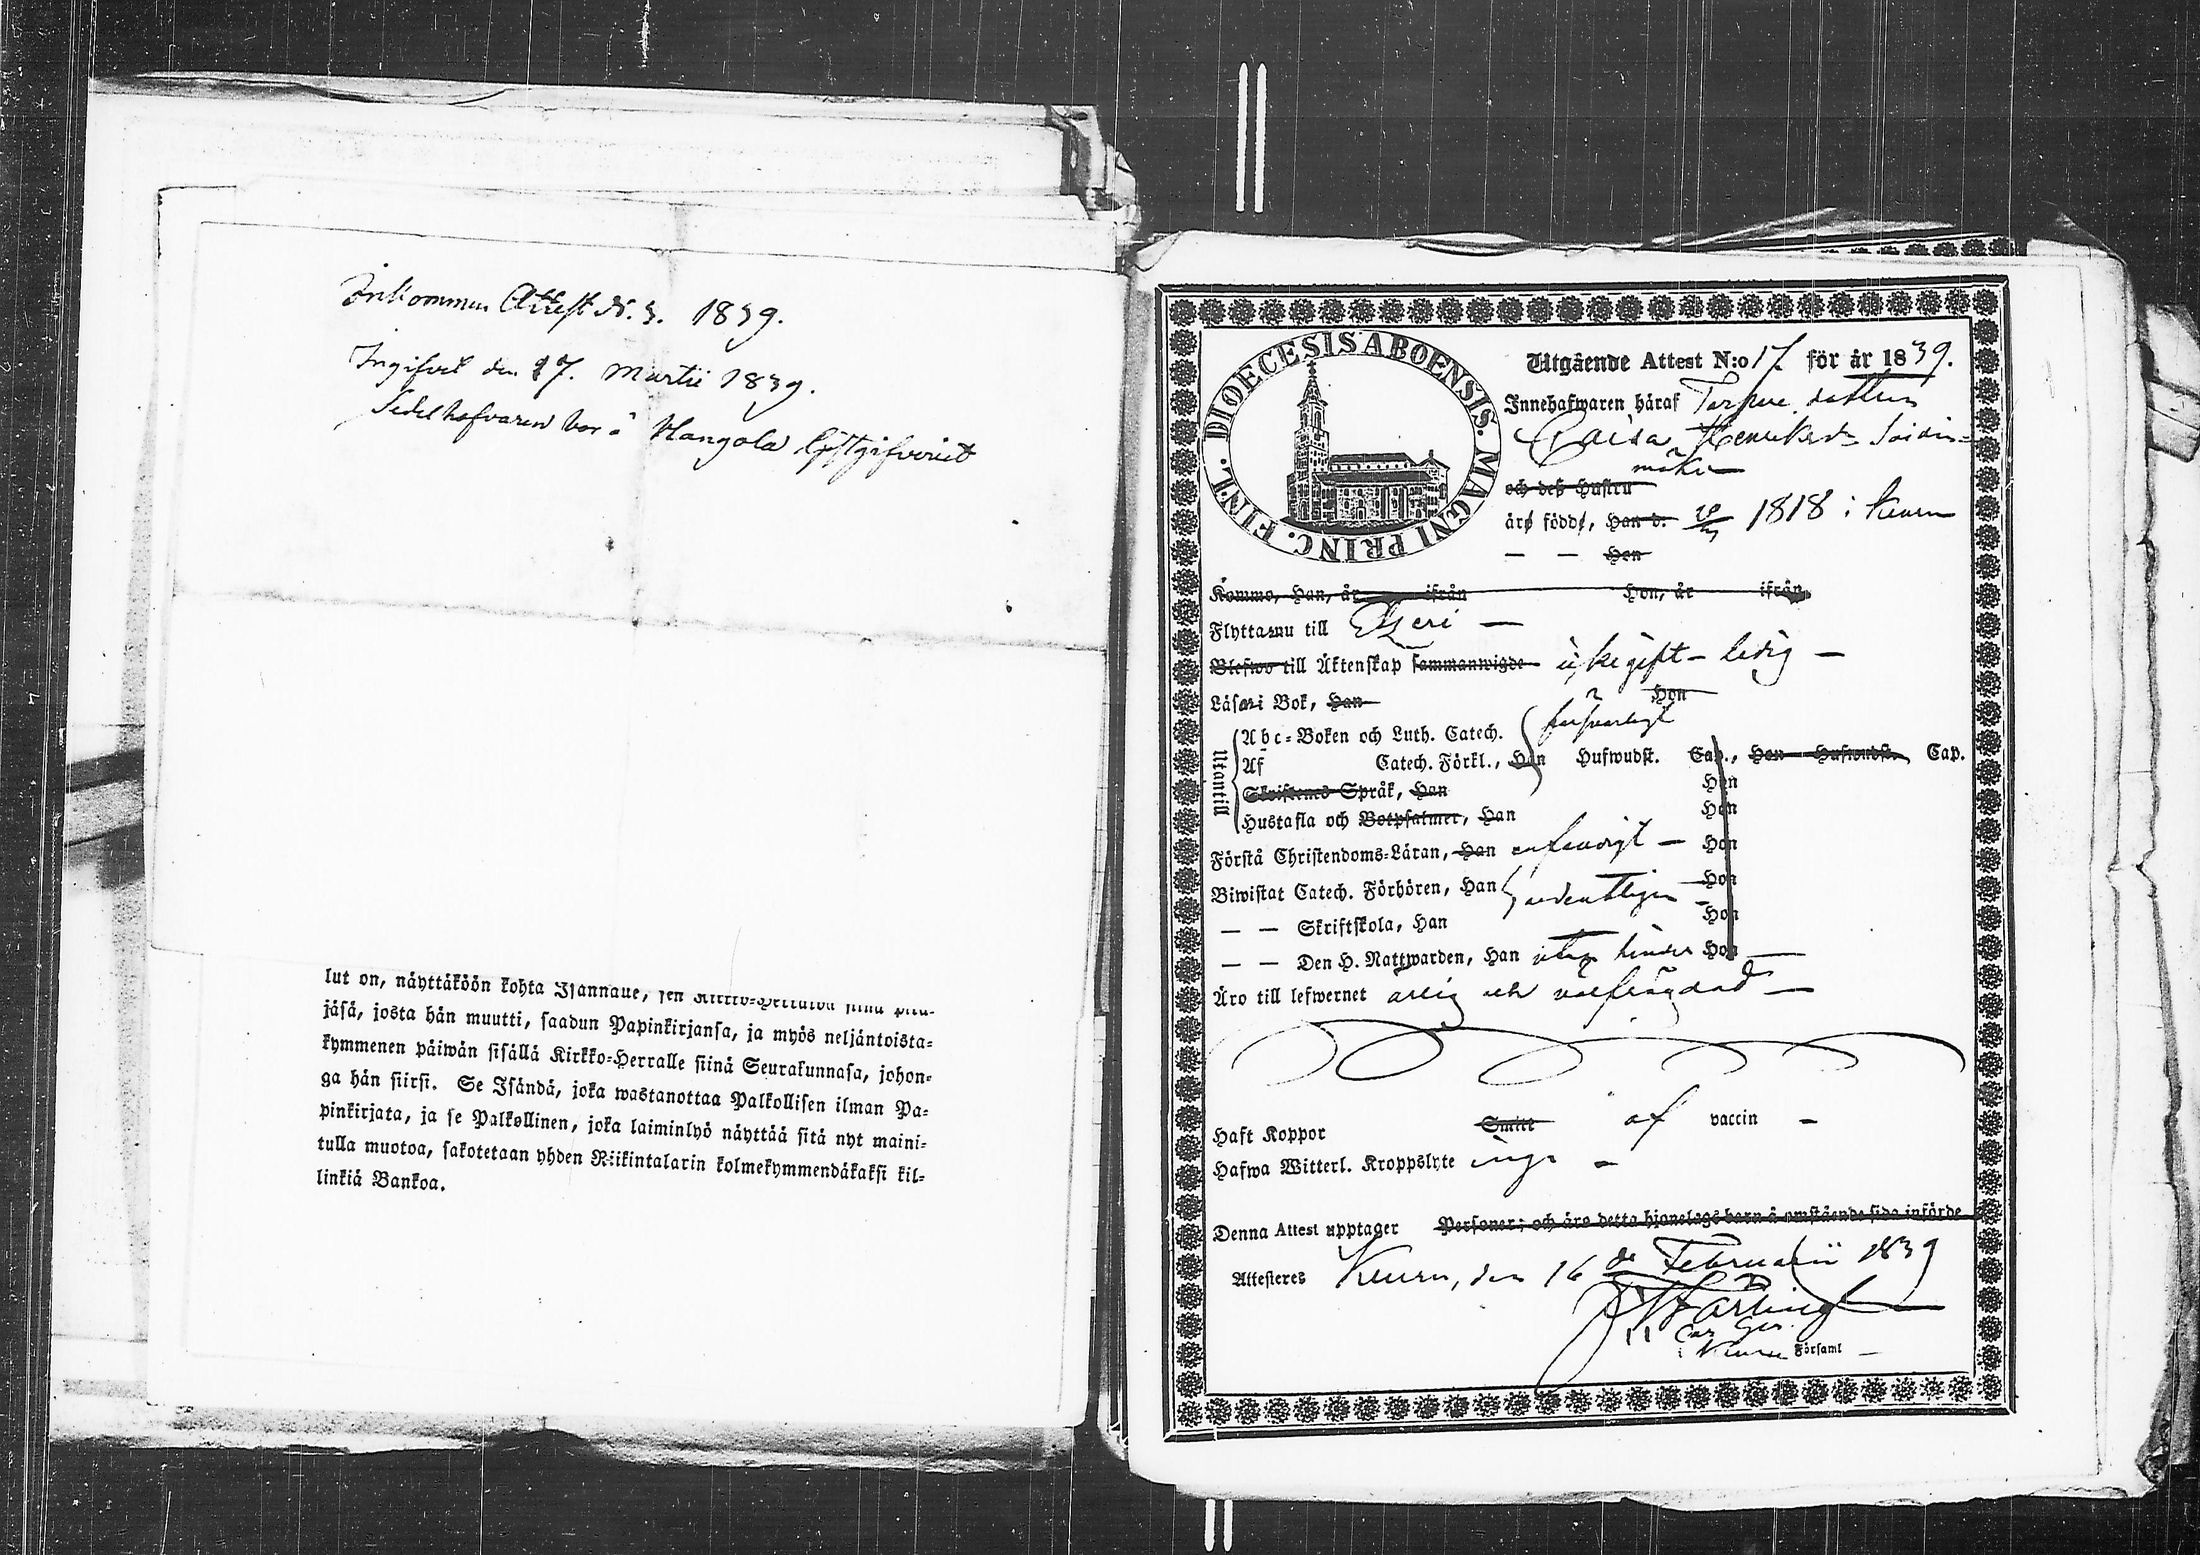 Inkommen Attest N. 3. 1839.
Ingifvet den 17. Martii 1839.
Sedelhafvaren bor å Mangola
lut on, näyttäköön kohta Isännälle, sen
jäsä, josta hän muutti, saadun Papinkirjansa, ja myös neljäntoista=
kymmenen päiwän sisällä Kirkko=Herralle siinä Seurakunnasa, johon=
ga hän siirsi. Se Isändä, joka wastanottaa Palkollisen ilman Pa=
pinkirjata, ja se Palkollinen, joka laiminlyö näyttää sitä nyt maini=
tulla muotoa, sakotetaan yhden Riikintalarin kolmekymmendäkaksi kil=
linkiä Bankoa.
DIOECESIS ABOENSIS. MAGNI PRINC. FINL.
Utgående Attest N:o 17 för år 1839.
Innehafwaren häraf Torpare dottren
Caisa Henriksdr Soidin=
mäki
och deß Hustru
äro född, Han d. 1818 i Keuru
— — Hon
Kommo, Han, år ifrån Hon, år ifrån
Flytta nu till Etseri —
Blefwo till Äktenskap sammanwigde icke gift – ledig —
Läsa i Bok, Han Hon
Utantill
Abc=Boken och Luth. Catech. försvarligt
Af Catech. Förkl., Han Hufwudst. Cap., Hon Hufwudst. Cap.
Skriftenes Språk, Han Hon
Hustafla och Botpsalmer, Han Hon
Förstå Christendoms=Läran, Han enfaldigt — Hon
Biwistat Catech. Förhören, Han ordentligen Hon
— — Skriftskola, Han Hon
— — Den H. Nattwarden, Han utan hinder Hon —
Äro till lefwernet ärlig och välfrägdad —
Haft Koppor Smitt af vaccin –
Hafwa Witterl. Kroppslyte inga –
Denna Attest upptager Personer; och äro detta hjonelags barn å omstående sida införde
Attesteres Keuru, den 16 de Februarii 1839
i Keuru Församl —